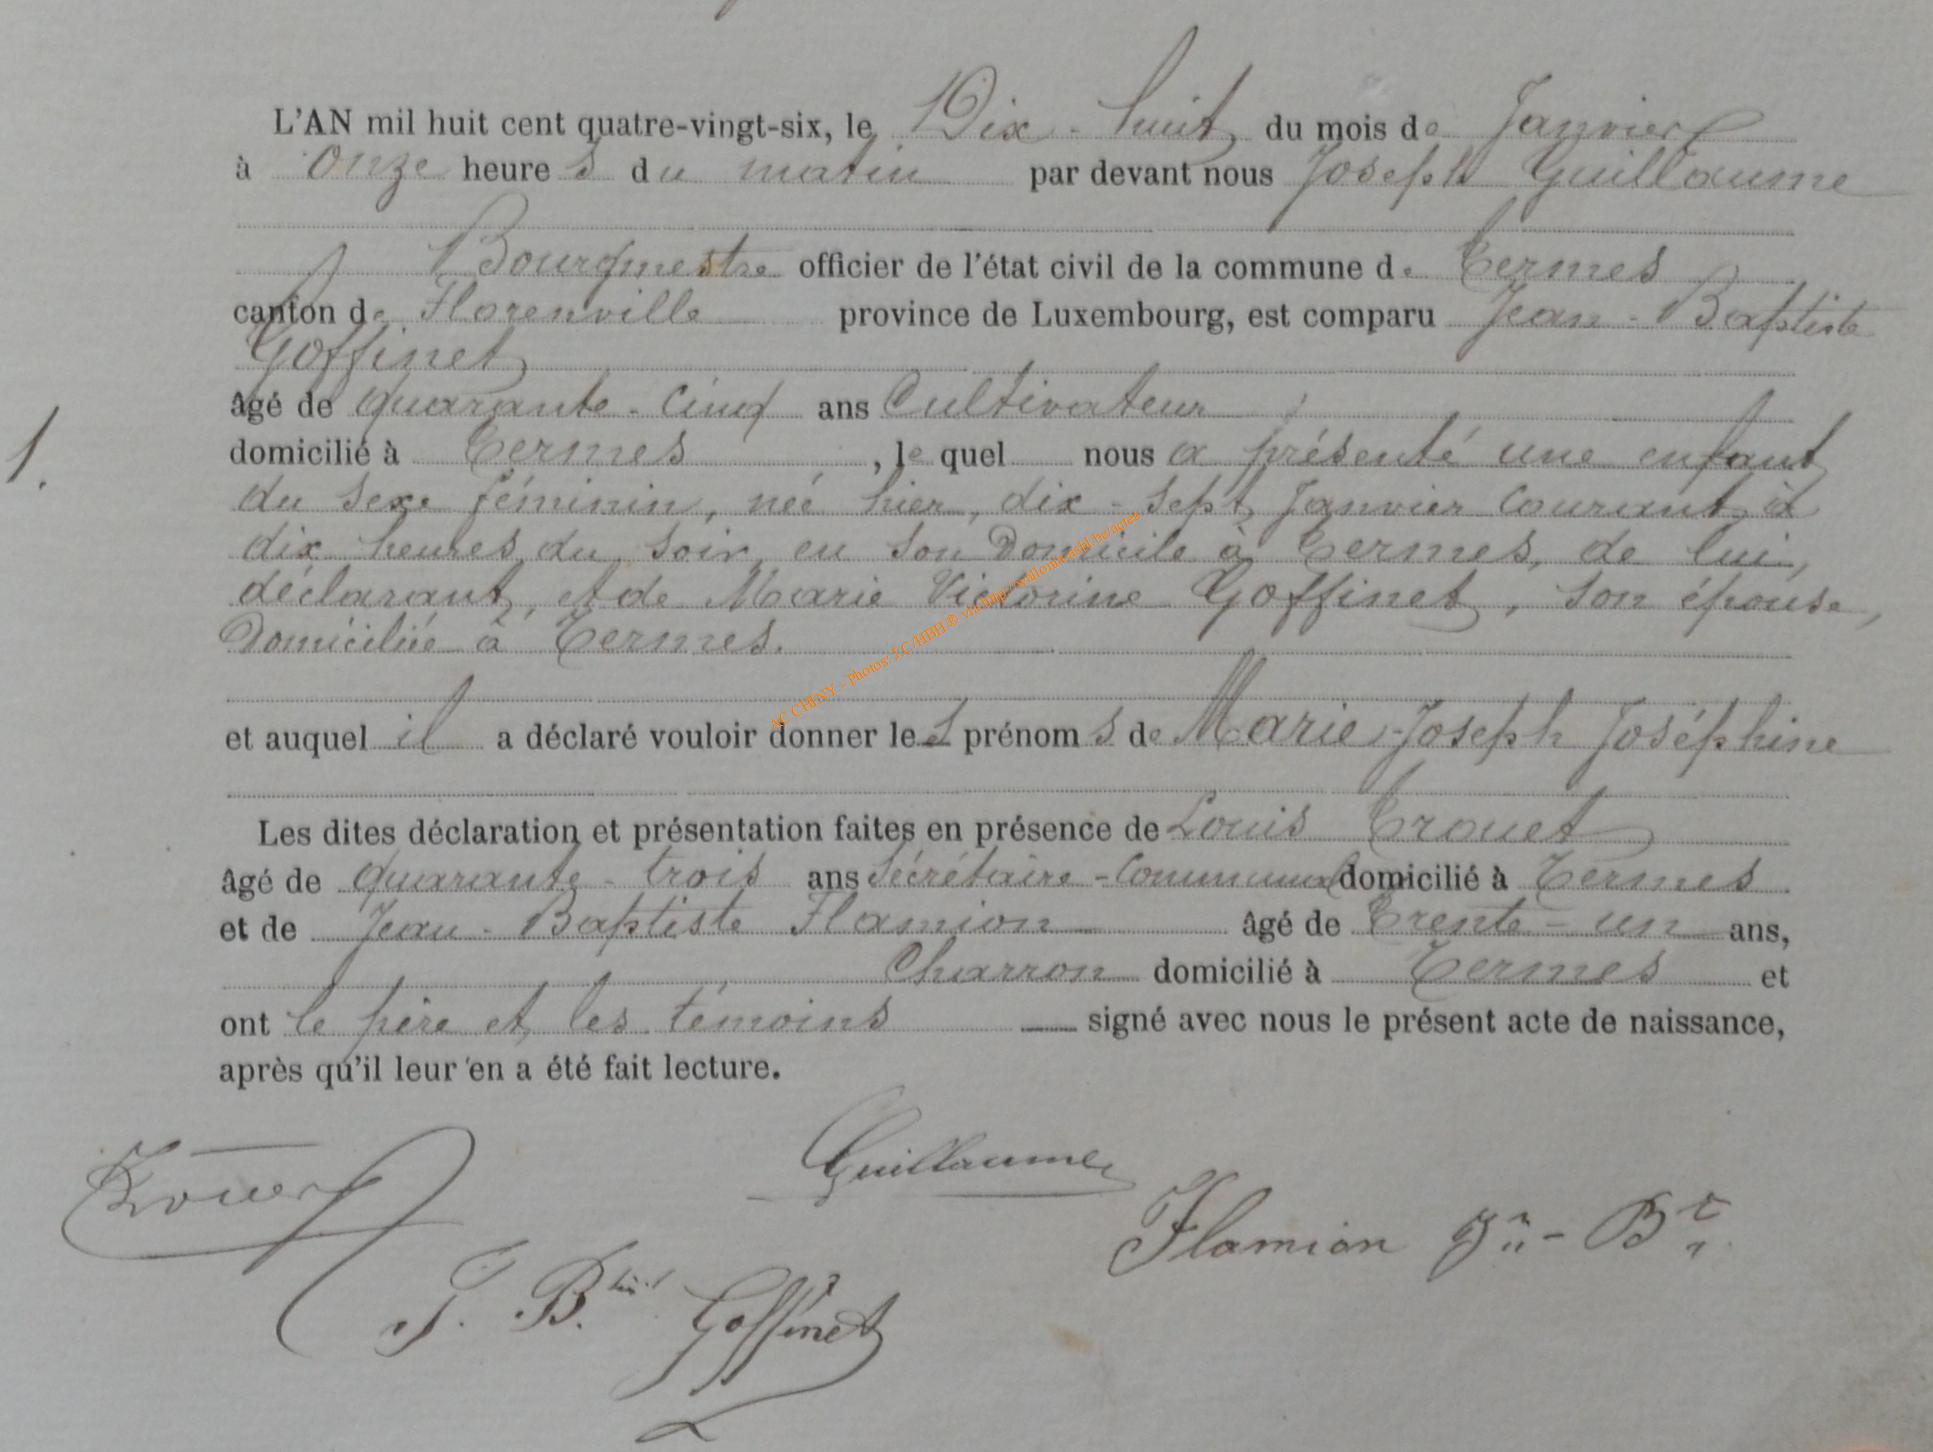 L'AN mil huit cent quatre-vingt-six, le Dix-huit du mois de Janvier
à onze heures du matin par devant nous Joseph Guillaume
Bourgmestre officier de l'état civil de la commune de Termes
canton de Florenville province de Luxembourg, est comparu Jean-Baptiste
Goffinet
âgé de quarante-cinq ans Cultivateur ;
1. domicilié à Termes, le quel nous a présenté une enfant
du sexe féminin, née hier, dix-sept Janvier courant à
dix heures du soir, en son Domicile à Termes, de lui,
déclarant, et de Marie Victorine Goffinet, son épouse,
Domiciliée à Termes.
et auquel il a déclaré vouloir donner les prénoms de Marie-Joseph Joséphine
Les dites déclaration et présentation faites en présence de Louis Trouet
âgé de quarante-trois ans Sécrétaire-Communal domicilié à Termes
et de Jean-Baptiste Flamion âgé de Trente-un ans,
Charron domicilié à Termes et
ont le père et les témoins signé avec nous le présent acte de naissance,
après qu'il leur en a été fait lecture.
Guillaume
Trouet
Flamion Jn-Bte
J. B. Goffinet
AC CHINY - Photos: J.C HBH ©